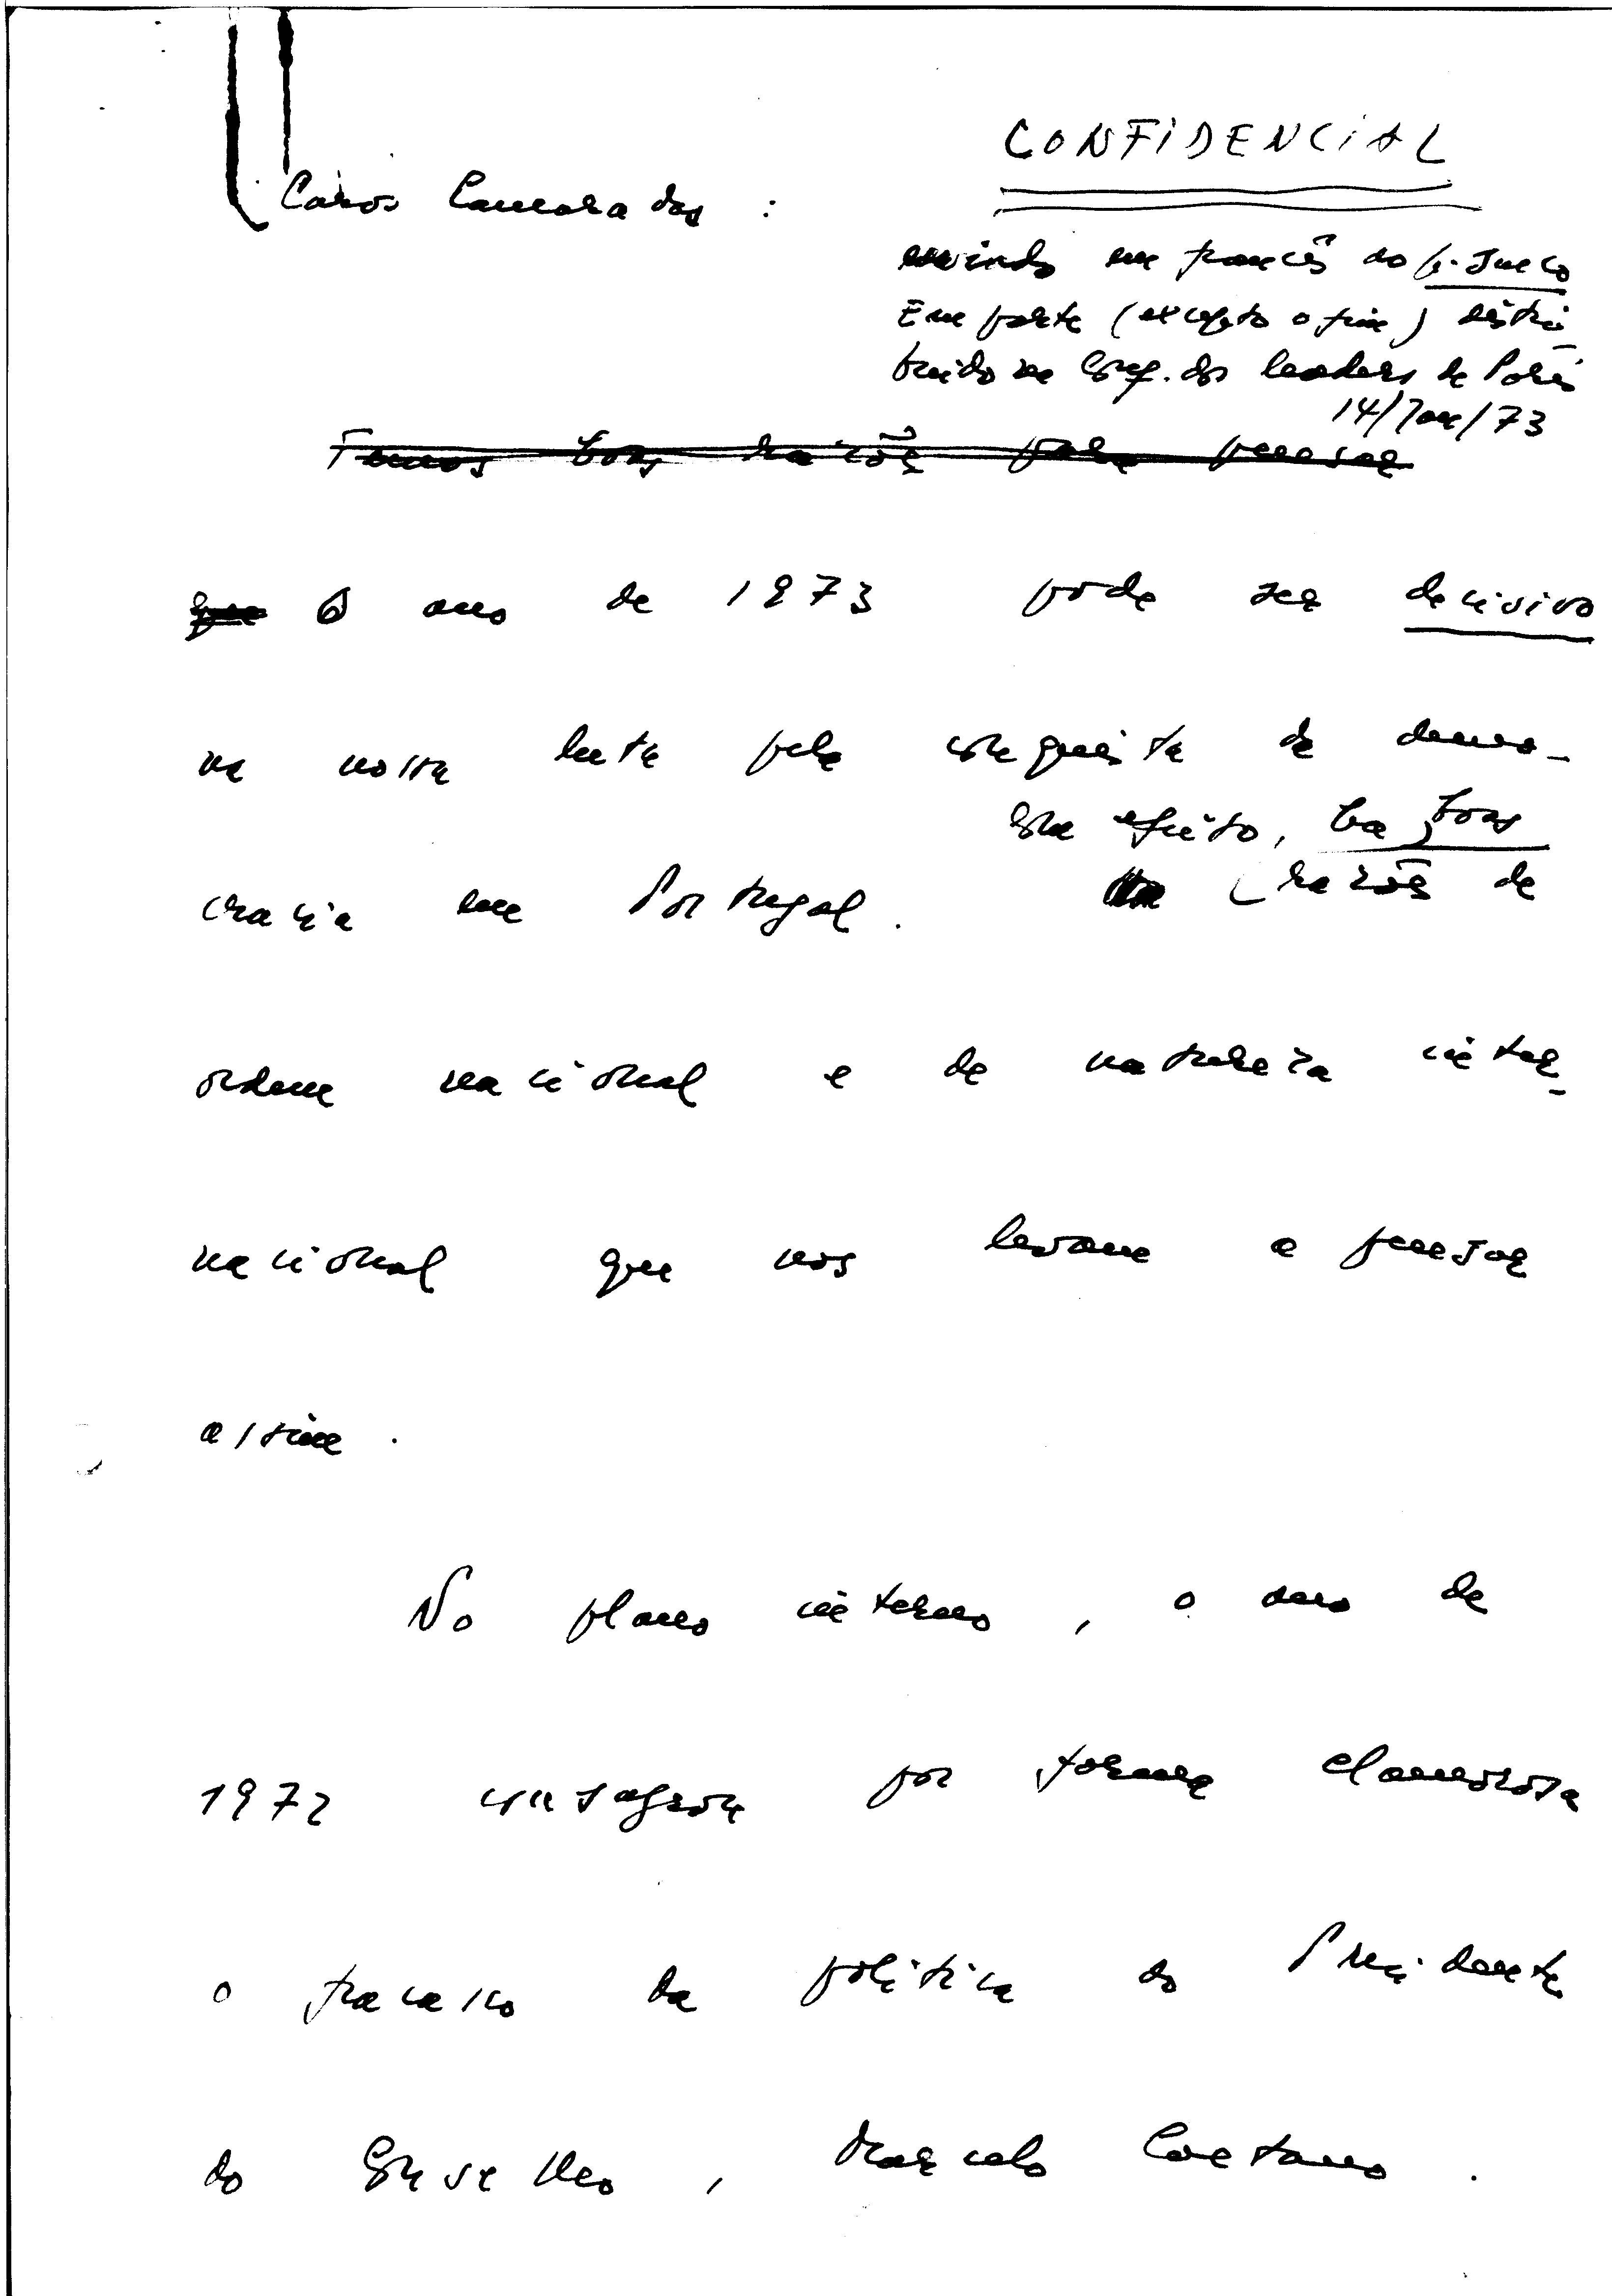 CONFIDENCIAL
Caros Camaradas :
enviado em francês ao p. sueco
Em parte (excepto o fim) distri-
buido na Conf. dos leaders de Paris
14/Jan/73
Temos boas razões para pensar
que O ano de 1973 pode ser decisivo
na nossa luta pela conquista da demo-
Com efeito, há boas
cracia em Portugal. razões de
ordem nacional e de natureza inter-
nacional que nos levam a pensar
assim.
No plano interno, o ano de
1972 consagrou por forma clamorosa
o fracasso da política do Presidente
do Conselho, Marcelo Caetano.